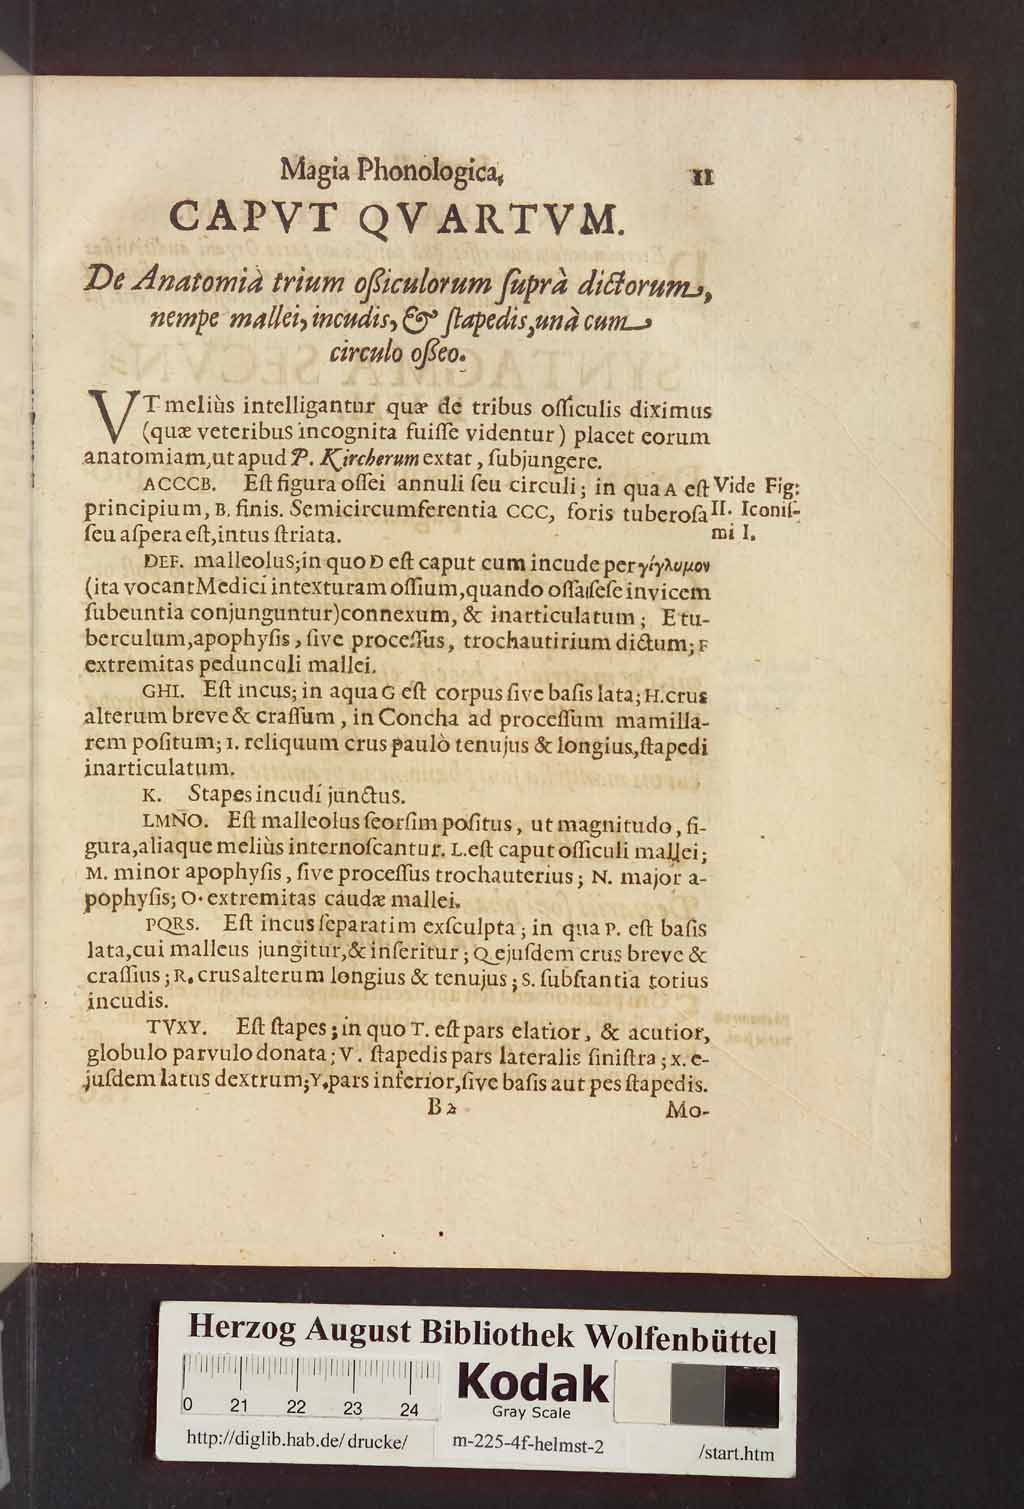 Magia Phonologica, 11
CAPVT QVARTVM.
De Anatomiâ trium oßiculorum ſuprà dictorum,
nempe mallei, incudis, & ſtapedis, unà cum
circulo oßeo.
VT meliùs intelligantur quæ de tribus oſſiculis diximus
(quæ veteribus incognita fuiſſe videntur) placet eorum
anatomiam, ut apud P. Kircherum extat, ſubjungere.
ACCCB. Eſt figura oſſei annuli ſeu circuli; in qua A eſt
principium, B. finis. Semicircumferentia CCC, foris tuberoſa
ſeu aſpera eſt, intus ſtriata.
Vide Fig:
II. Iconiſ-
mi I.
DEF. malleolus; in quo D eſt caput cum incude per γίγλυμον
(ita vocant Medici intexturam oſſium, quando oſſa ſeſe invicem
ſubeuntia conjunguntur) connexum, & inarticulatum; E tu-
berculum, apophyſis, ſive proceſſus, trochautirium dictum; F
extremitas pedunculi mallei.
GHI. Eſt incus; in aqua G eſt corpus ſive baſis lata; H. crus
alterum breve & craſſum, in Concha ad proceſſum mamilla-
rem poſitum; I. reliquum crus paulò tenujus & longius, ſtapedi
inarticulatum.
K. Stapes incudi junctus.
LMNO. Eſt malleolus ſeorſim poſitus, ut magnitudo, fi-
gura, aliaque meliùs internoſcantur. L. eſt caput oſſiculi mallei;
M. minor apophyſis, ſive proceſſus trochauterius; N. major a-
pophyſis; O. extremitas caudæ mallei.
PQRS. Eſt incus ſeparatim exſculpta; in qua P. eſt baſis
lata, cui malleus jungitur, & inſeritur; Q ejuſdem crus breve &
craſſius; R. crus alterum longius & tenujus; S. ſubſtantia totius
incudis.
TVXY. Eſt ſtapes; in quo T. eſt pars elatior, & acutior,
globulo parvulo donata; V. ſtapedis pars lateralis ſiniſtra; X. e-
juſdem latus dextrum; Y. pars inferior, ſive baſis aut pes ſtapedis.
B 2 Mo-
Herzog August Bibliothek Wolfenbüttel
0 21 22 23 24
Kodak
Gray Scale
http://diglib.hab.de/drucke/ m-225-4f-helmst-2 /start.htm